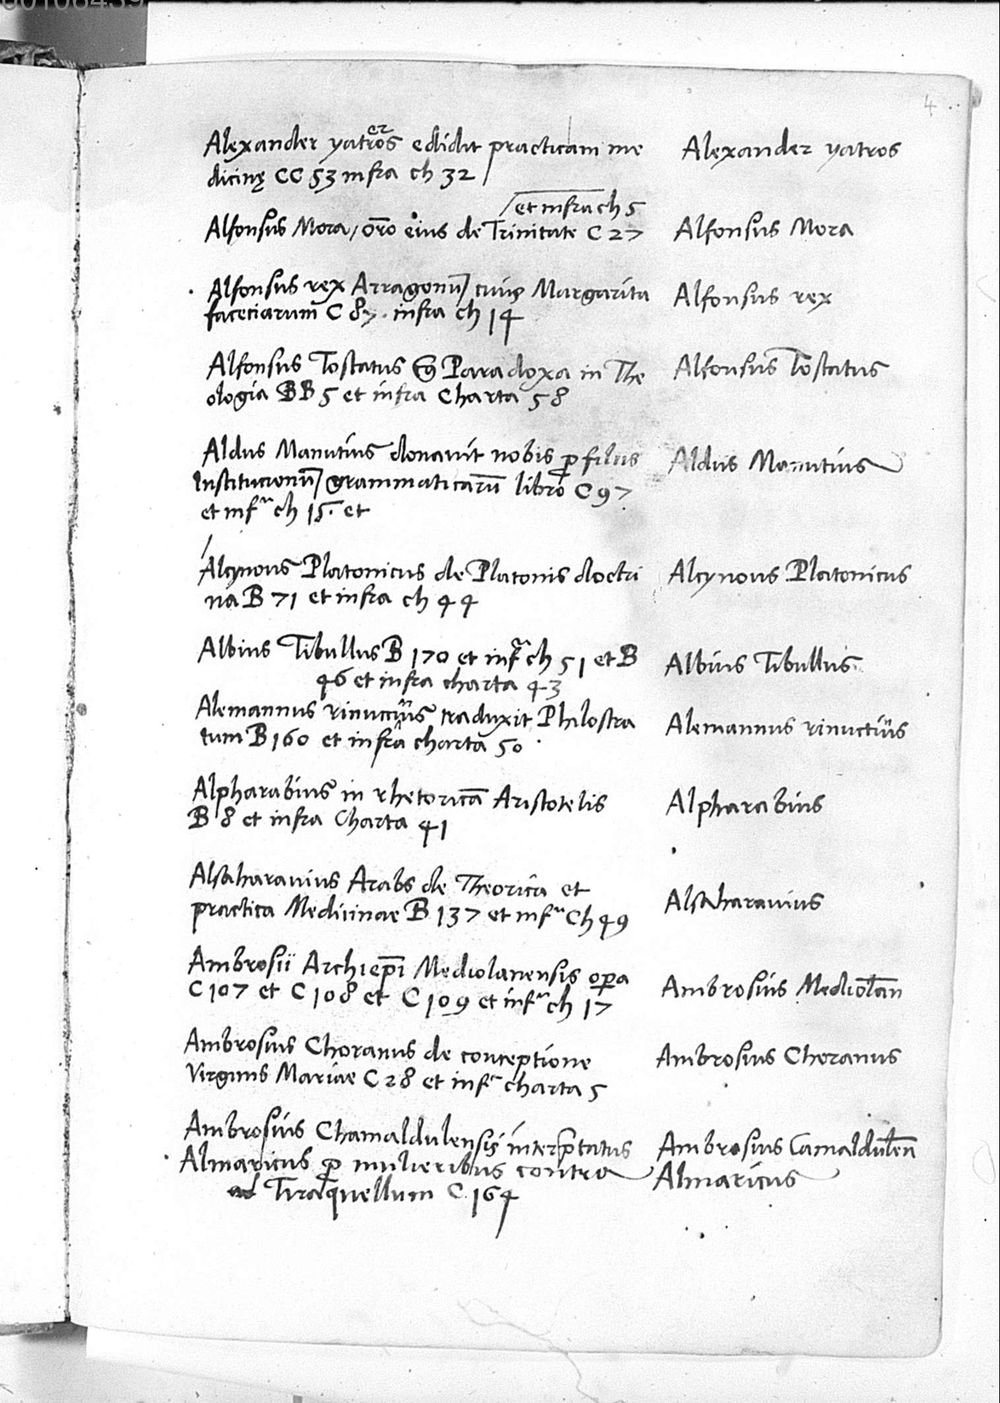 4
Alexander yatros edidit practicam me Alexander yatros
dicinę CC 53 infra ch 32
et infra ch 5
Alfonsus Mora, oro eius de Trinitate C 27 Alfonsus Mora
Alfonsus rex Arragonũ cuius Margarita Alfonsus rex
facetiarum C 87. infra ch 14
Alfonsus Tostatus Paradoxa in The Alfonsus Tostatus
ologia BB 5 et infra Charta 58
Aldus Manutius donavit nobis filius Aldus Manutius
Institutionũ grammaticarũ libro C 97
et infa ch 15. et
Alcynous Platonicus de Platonis doctri Alcynous Platonicus
na B 71 et infra ch 44
Albius Tibullus B 170 et infa ch 51 et B Albius Tibullus
46 et infra charta 43
Alemannus rinuctius traduxit Philostra Alemannus rinuctius
tum B 160 et infra charta 50
Alpharabius in rhetoricã Aristotelis Alpharabius
B 8 et infra Charta 41
Alsaharavius Arabs de Theorica et Alsaharavius
practica Medicinae B 137 et infa Ch 49
Ambrosii Archiepĩ Mediolanensis opa Ambrosius Mediolan
C 107 et C 108 et C 109 et infa ch 17
Ambrosius Choranus de conceptione Ambrosius Choranus
Virginis Mariae C 28 et infa charta 5
Ambrosius Chamaldulensis interptatus Ambrosius Camaldulen
Almaricus p mulieribus contra Almaricus
Tiraquellum C 164